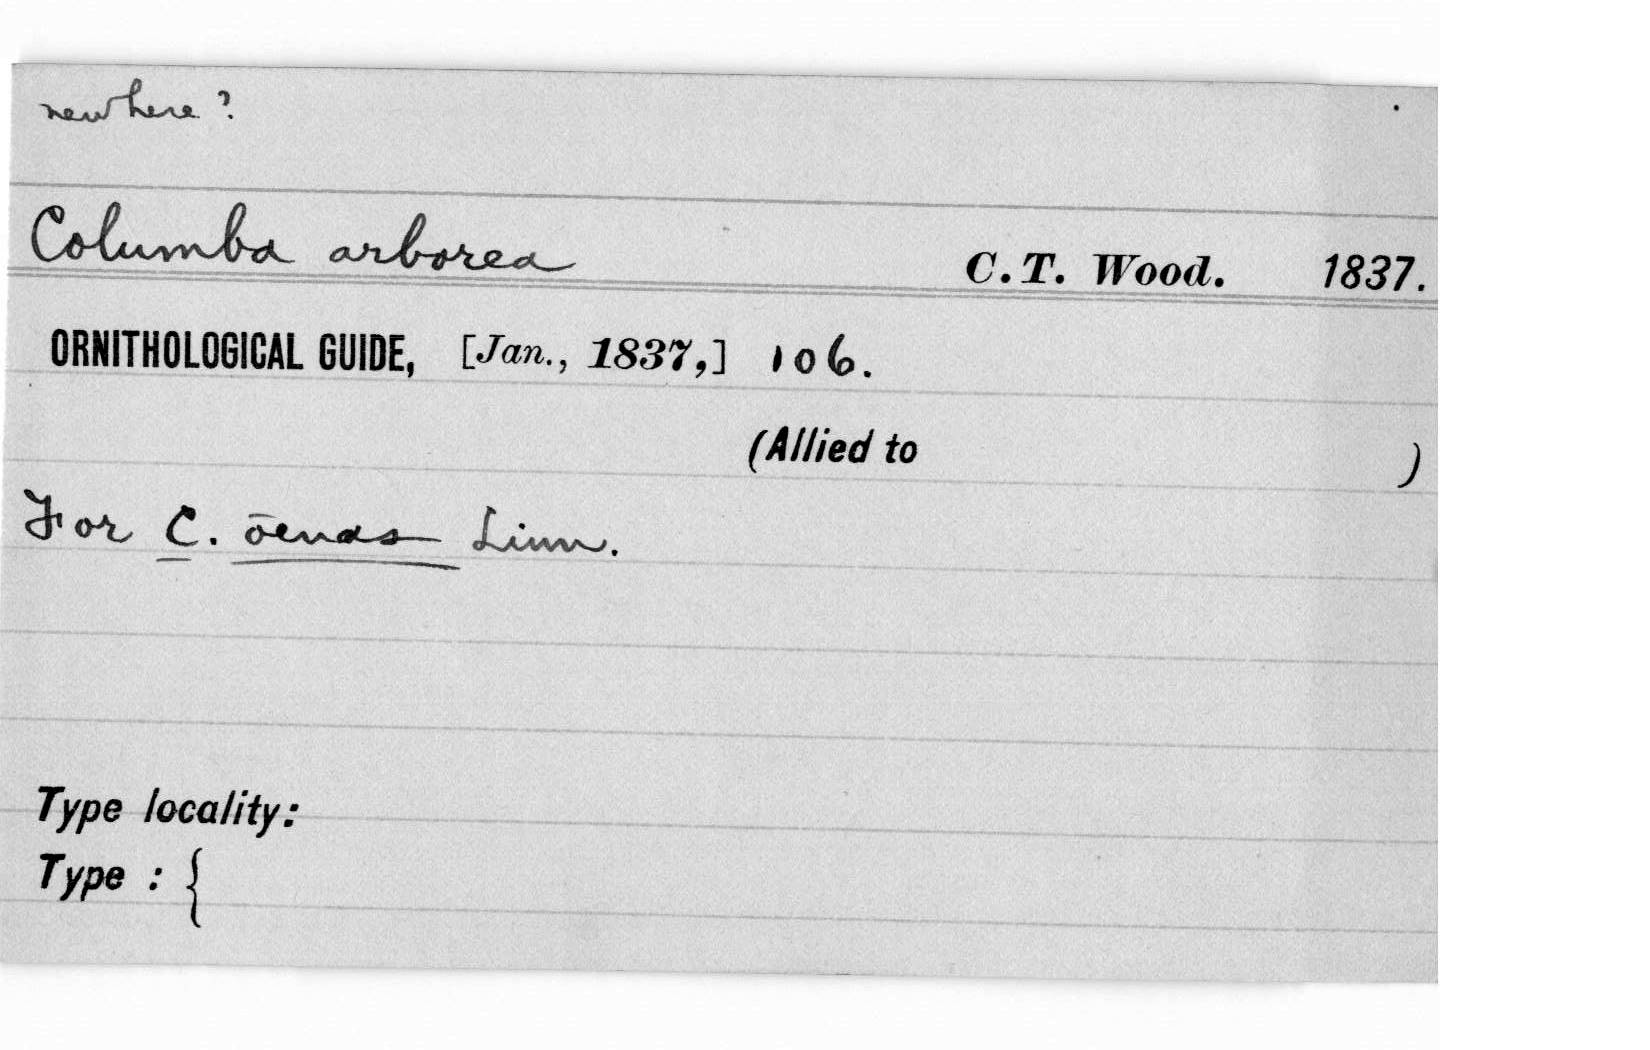 new here?
Columba arborea C.T. Wood. 1837.
ORNITHOLOGICAL GUIDE, [Jan., 1837,] 106.
(Allied to )
For C. ōenas Linn.
Type locality:
Type : {